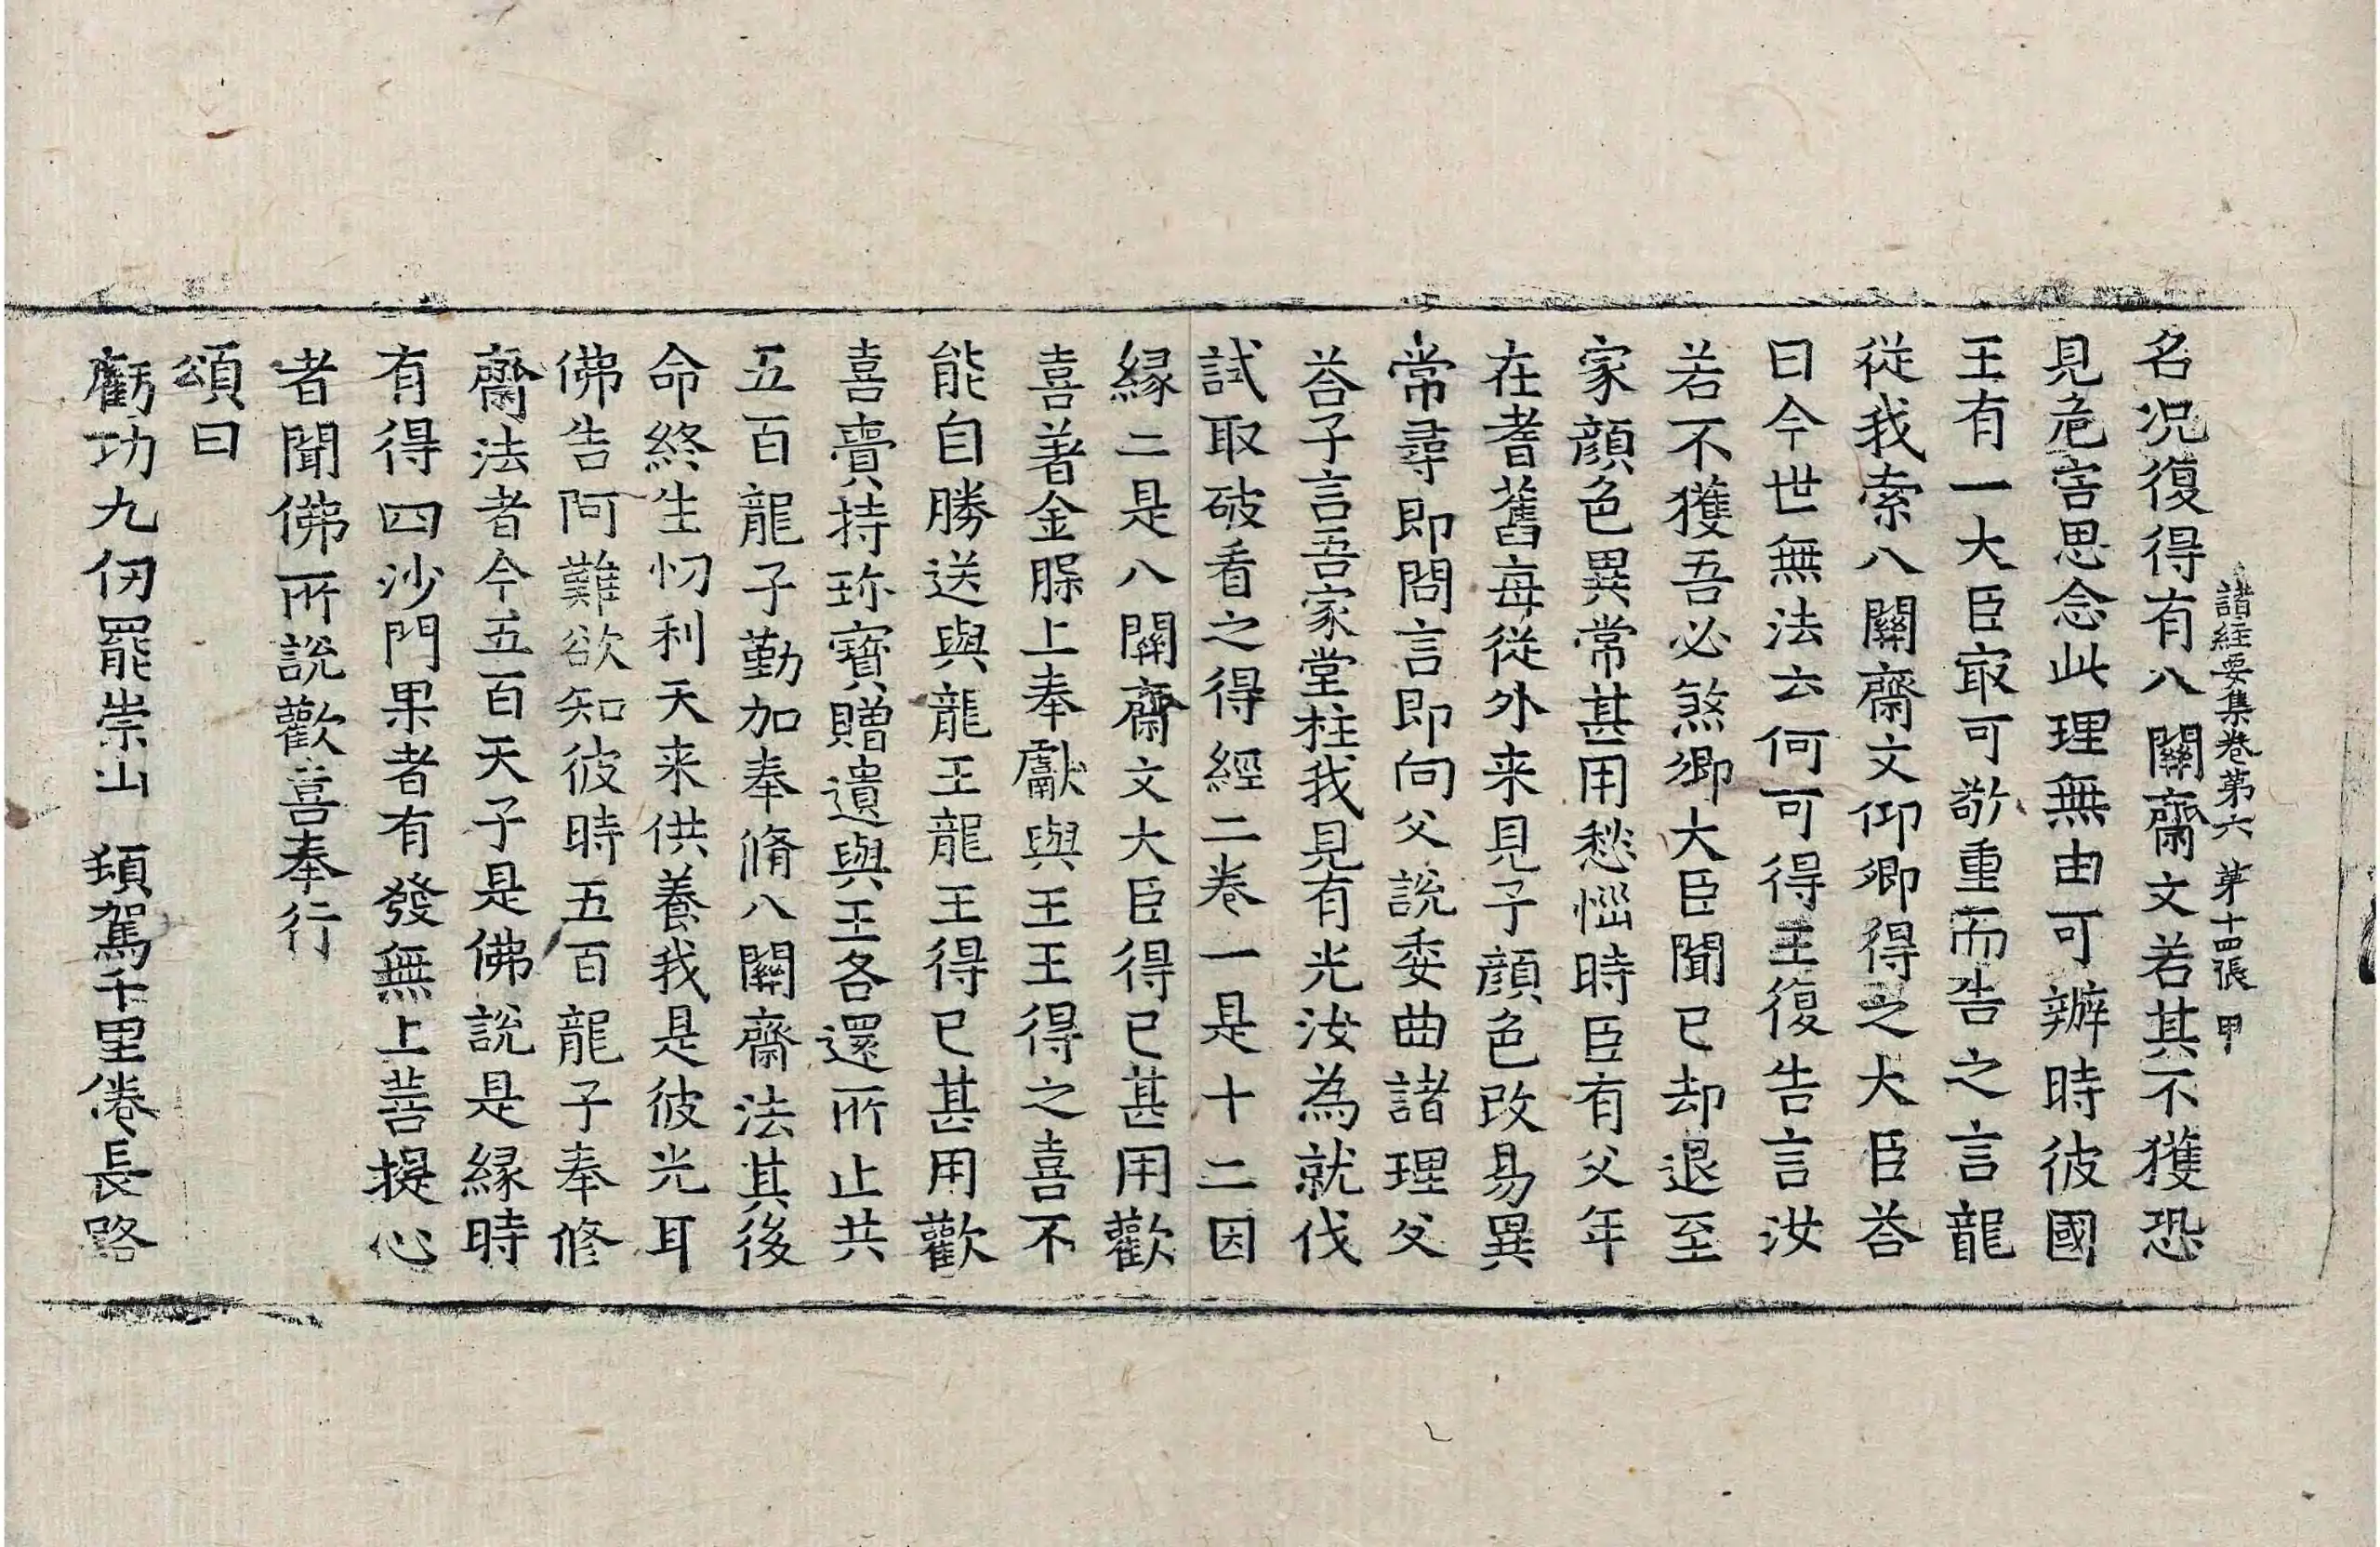 諸經要集卷第六 第十四張 甲
名况復得有八關齋文若其不獲恐
見危害思念此理無由可辦時彼國
王有一大臣㝡可敬重而告之言龍
從我索八關齋文仰卿得之大臣荅
曰今世無法云何可得王復告言汝
若不獲吾必煞卿大臣聞已却退至
家顔色異常甚用愁惱時臣有父年
在耆舊每從外来見子顔色改易異
常尋即問言即向父說委曲諸理父
荅子言吾家堂柱我見有光汝為就伐
試取破看之得經二卷一是十二因
緣二是八關齋文大臣得已甚用歡
喜著金髹上奉獻與王王得之喜不
能自勝送與龍王龍王得已甚用歡
喜賷持珎寶贈遺與王各還所止共
五百龍子勤加奉脩八關齋法其後
命終生忉利天来供養我是彼光耳
佛告阿難欲知彼時五百龍子奉修
齋法者今五百天子是佛說是緣時
有得四沙門果者有發無上菩提心
者聞佛所說歡喜奉行
頌曰
虧功九仞罷崇山 頓駕千里倦長路